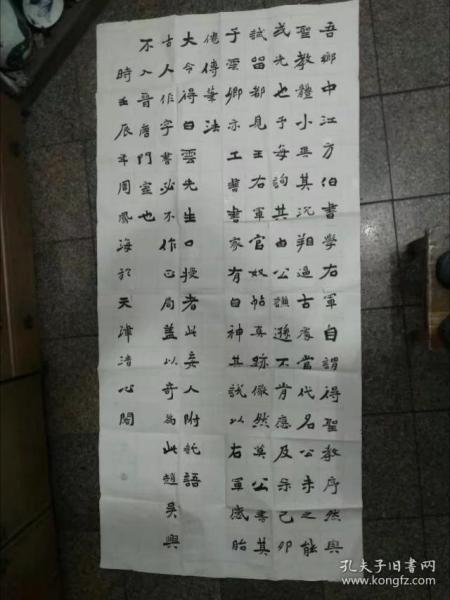 吾鄉中江方伯書學右軍自謂得聖教序然與
聖教體小異其沉翔過古處當代名公未之能
或先也予每詢其由公謙遜不肯應及余己卯
試留都見王右軍官奴帖真跡儼然莫公書其
子雲卿亦工書書家有自神其說以右軍感胎
仙傳筆法
大令得白雲先生口授者此妄人附託語
古人作字書必不作正局蓋以奇為此趙吳興
不入晉唐門室也
時壬辰年周風海於天津清心閣
孔夫子旧书网
www.kongfz.com